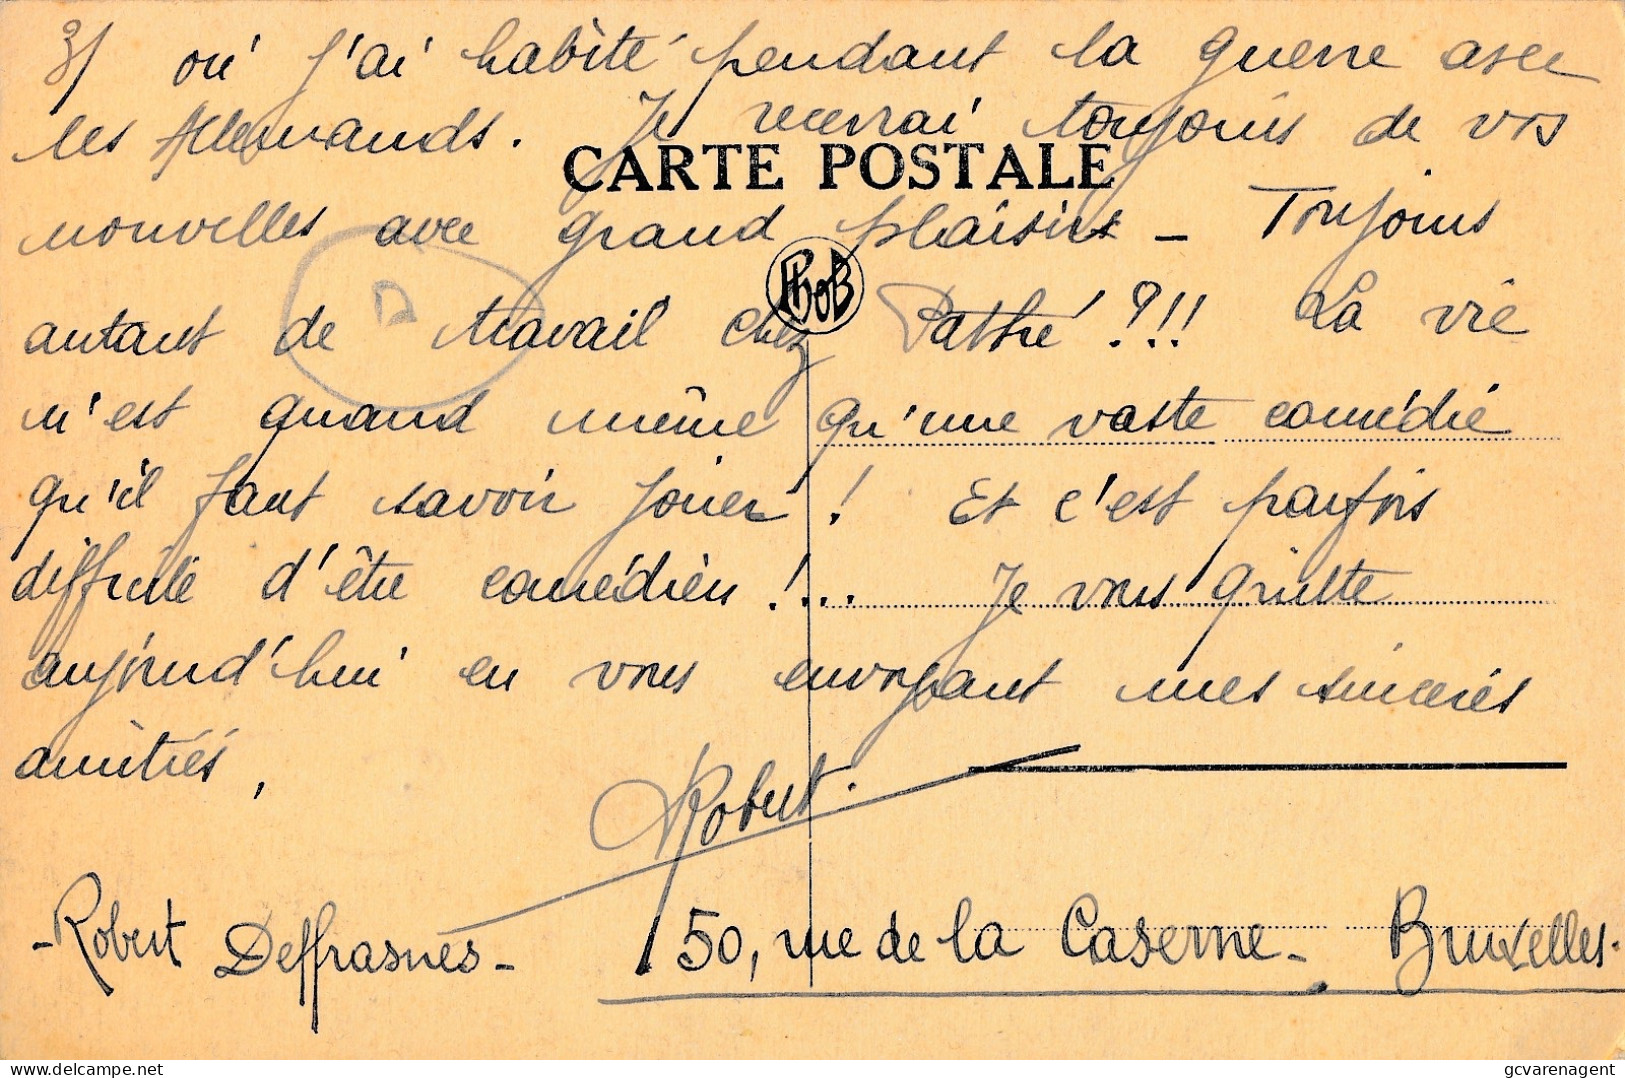 3/ où j'ai habité pendant la guerre avec
les Allemands. Je recevrai toujours de vos
CARTE POSTALE
nouvelles avec grand plaisir - Toujours
PhoB
autant de travail chez Pathé ?!! La vie
n'est quand même qu'une vaste comédie
qu'il faut savoir jouer ! Et c'est parfois
difficile d'être comédien !... Je vous quitte
aujourd'hui en vous envoyant mes sincères
amitiés,
Robert.
- Robert Deffrasnes - 50, rue de la Caserne - Bruxelles.
gcvarenagent